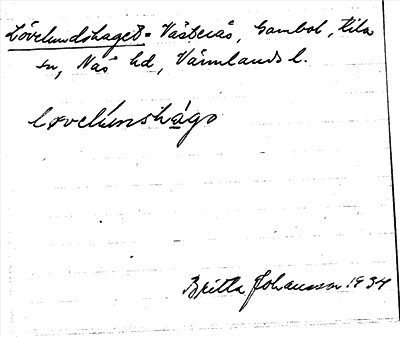 Lövelundshaget = Västerås, Gambol, Kila
sn, Näs hd, Värmlands l.
løvelúnshàgə
Britta Johansson 1934